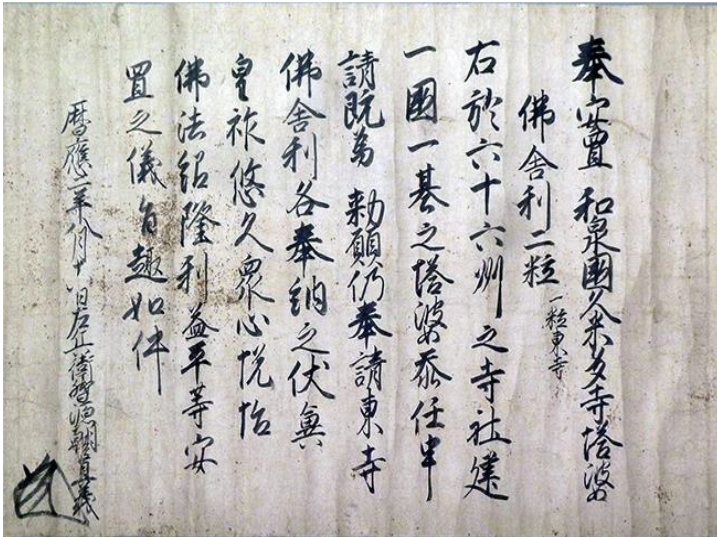 奉安置 和泉國久米多寺塔婆
佛舎利二粒 一粒東寺
右於六十六州之寺社建
一國一基之塔婆忝任申
請既為 勅願仍奉請東寺
佛舎利各奉納之伏冀
皇祚悠久衆心悦怡
佛法紹隆利益平等安
置之儀旨趣如件
暦應二年八月十八日左兵衛督源朝臣直義